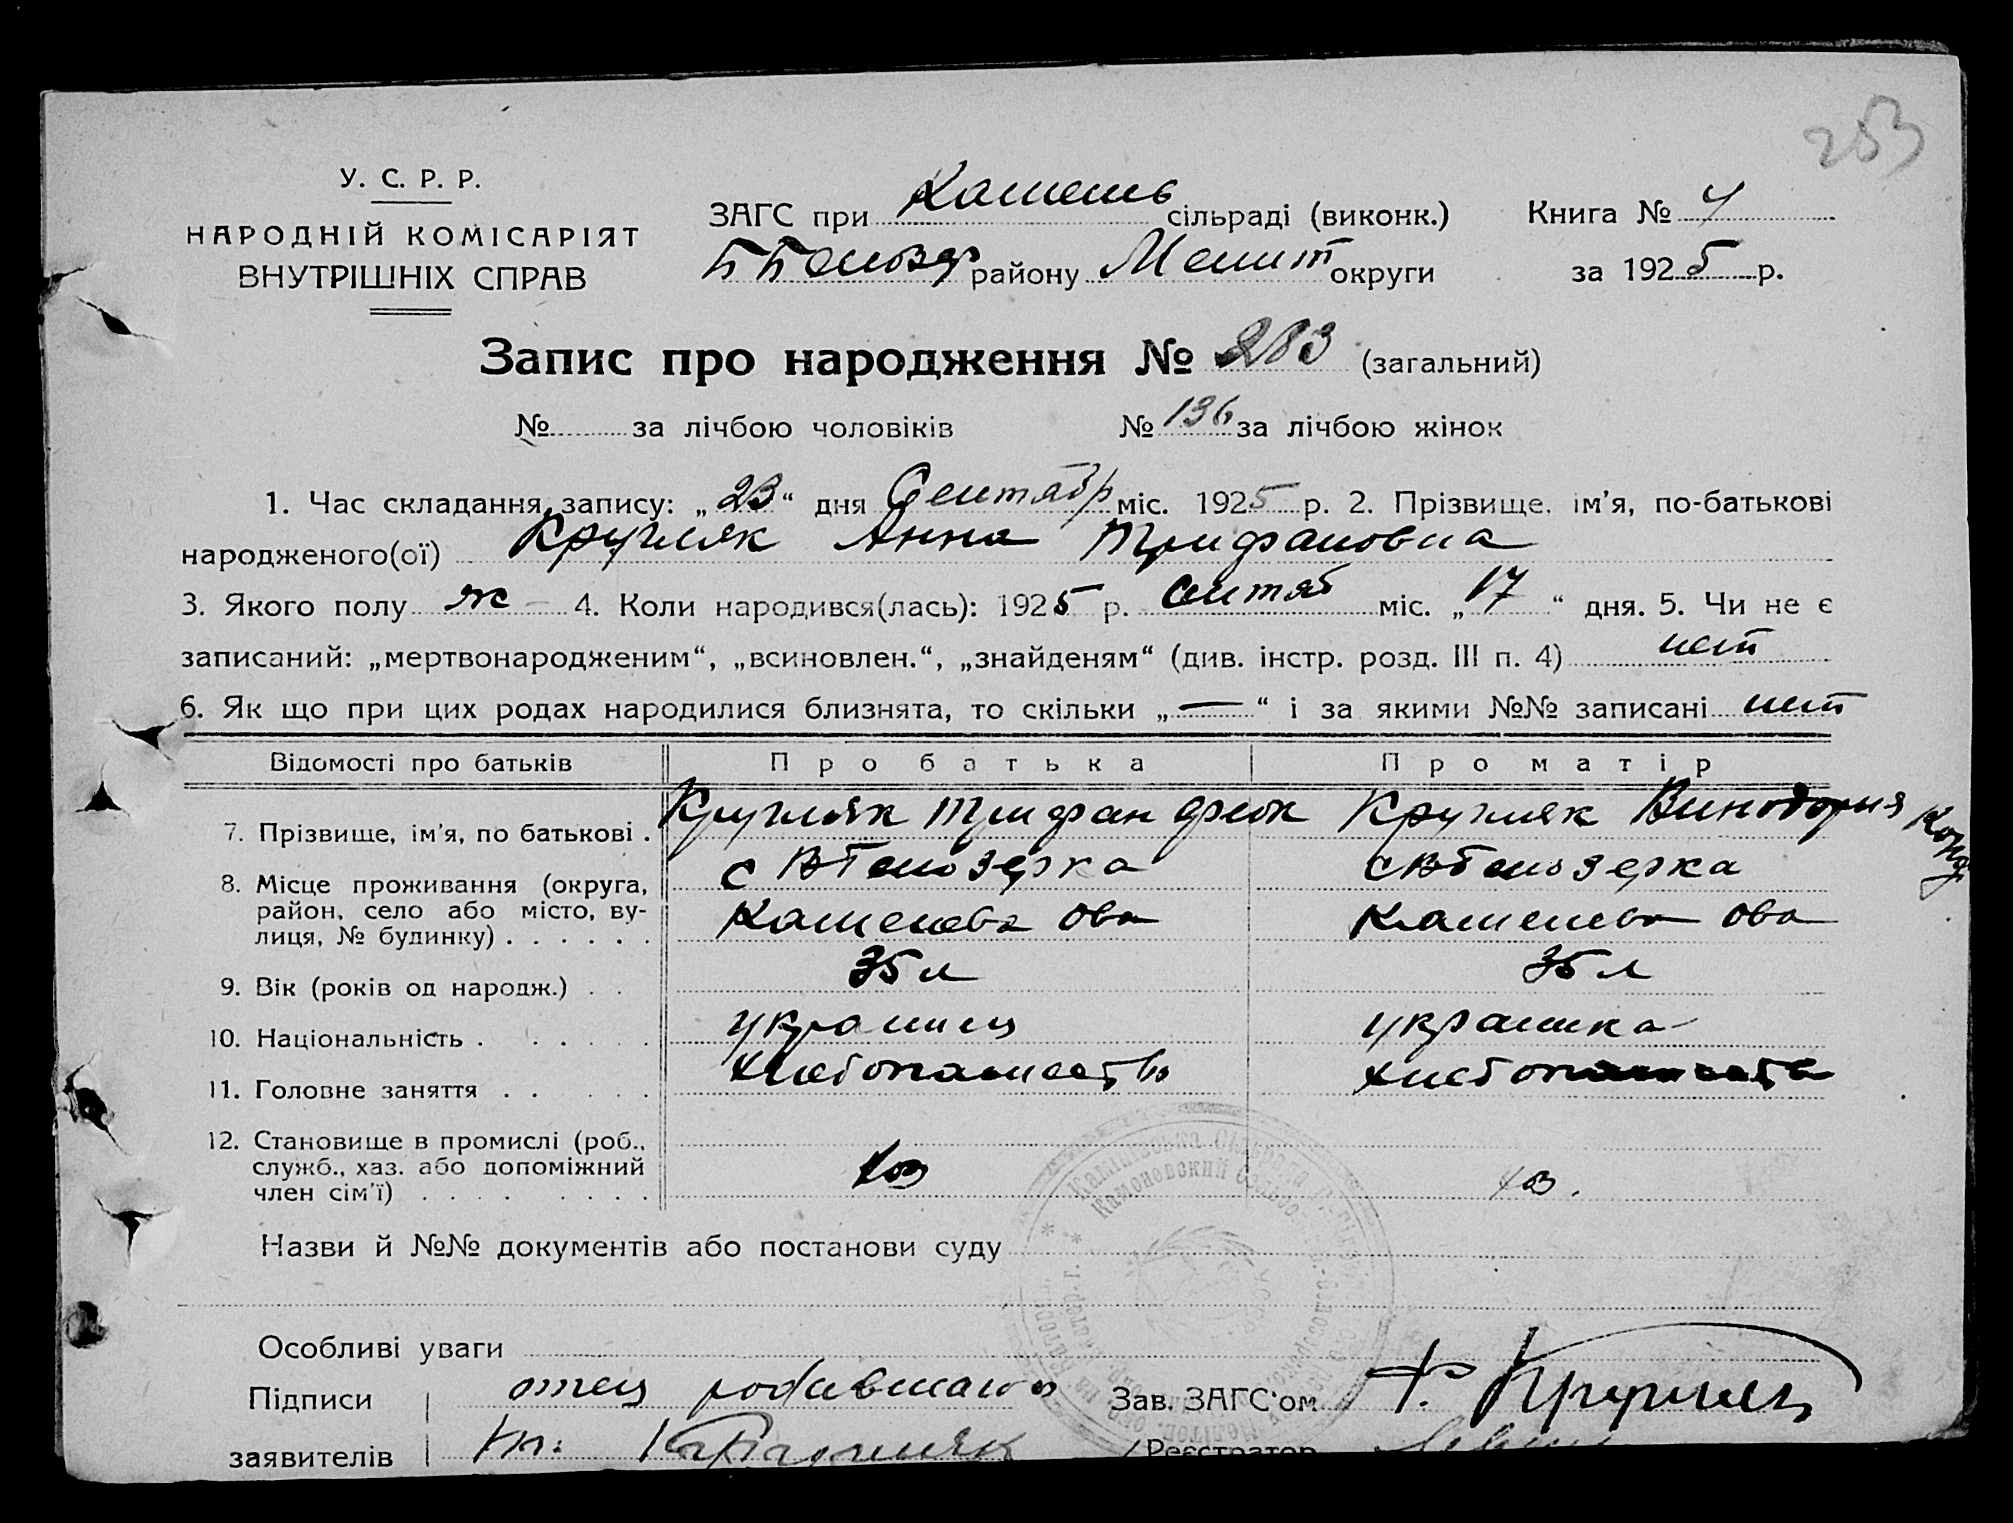 253
У. С. Р. Р.
НАРОДНІЙ КОМІСАРІЯТ
ВНУТРІШНІХ СПРАВ
ЗАГС при Камень сільраді (виконк.)
Книга № 4
ББелозер району Мелит округи
за 1925 р.
Запис про народження № 283 (загальний)
№ за лічбою чоловіків № 136 за лічбою жінок
1. Час складання запису: „23“ дня Сентябр міс. 1925 р. 2. Прізвище, ім'я, по-батькові
народженого(ої) Кругляк Анна Трифановна
3. Якого полу ж 4. Коли народився(лась): 1925 р. Сентяб міс. „17“ дня. 5. Чи не є
записаний: „мертвонародженим“, „всиновлен.“, „знайденям“ (див. інстр. розд. III п. 4) нет
6. Як що при цих родах народилися близнята, то скільки „—“ і за якими №№ записані нет
Відомості про батьків Про батька Про матір
7. Прізвище, ім'я, по батькові . Кругляк Трифан Кругляк
8. Місце проживання (округа, с ВБелозерка с ВБелозерка
район, село або місто, ву- Каменева Ова Каменева Ова
лиця, № будинку) . . . . . .
9. Вік (років од народж.) . . 35 л 35 л
10. Національність . . . . . . украинец украинка
11. Головне заняття . . . . . хлебопашество хлебопашество
12. Становище в промислі (роб.,
служб., хаз. або допоміжний хоз хоз.
член сім'ї) . . . . . . . . .
Назви й №№ документів або постанови суду
Особливі уваги
Підписи отец Зав. ЗАГС'ом
заявителів Кругляк Реєстратор